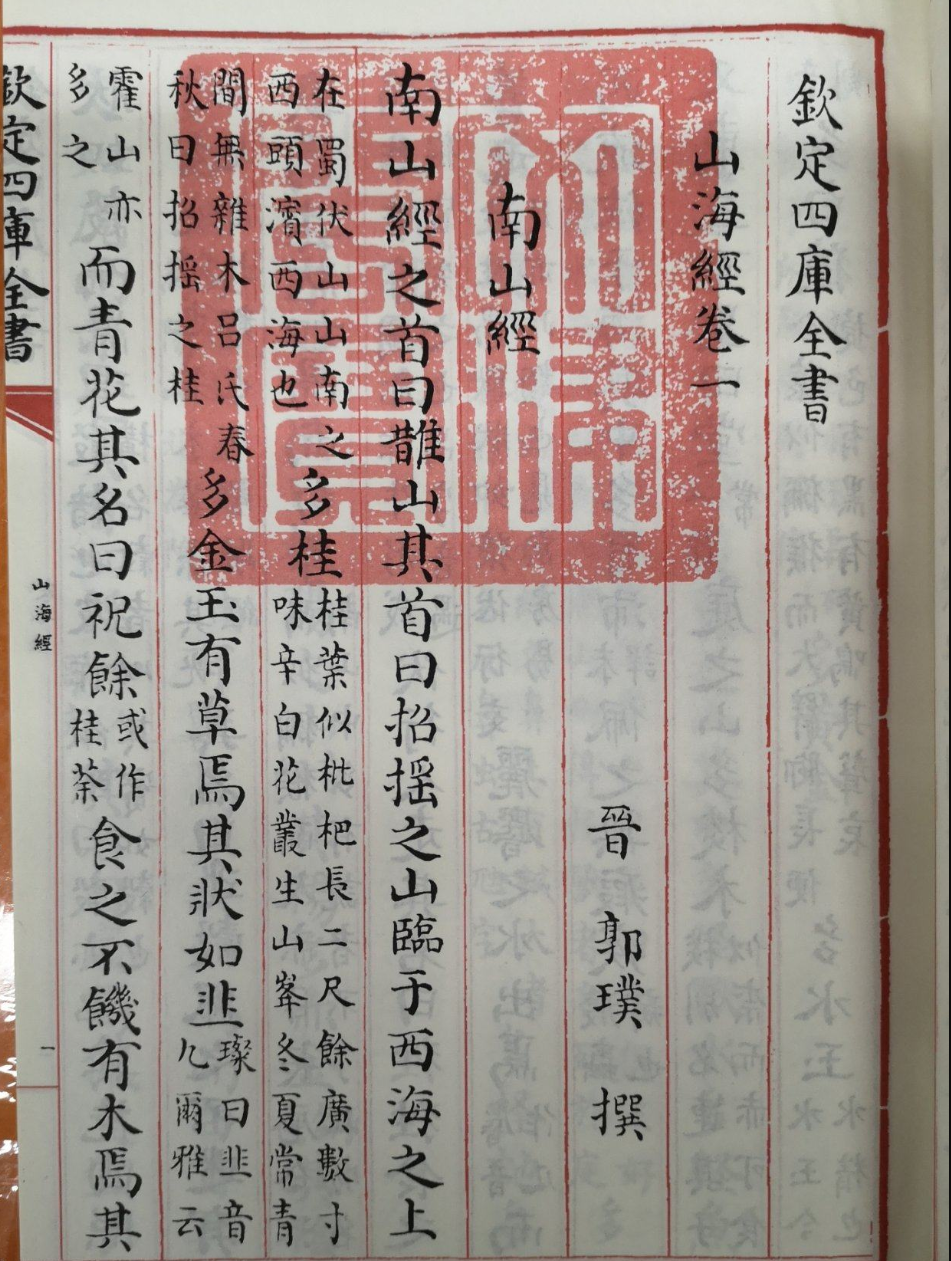 欽定四庫全書
山海經卷一
晉 郭璞 撰
南山經
南山經之首曰䧿山其首曰招揺之山臨于西海之上
在蜀伏山山南之西頭濱西海也多桂桂葉似枇杷長二尺餘廣數寸味辛白花叢生山峯冬夏常青
間無雜木呂氏春秋曰招揺之桂多金玉有草焉其狀如韭璨曰韭音九爾雅云
霍山亦多之而青花其名曰祝餘或作桂荼食之不饑有木焉其
欽定四庫全書
山海經
一
文淵閣寶